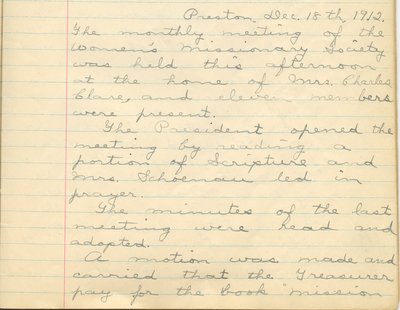 Preston, Dec. 18th, 1912.
The monthly meeting of the
Women's Missionary Society
was held this afternoon
at the home of Mrs. Charles
Clare, and eleven members
were present.
The President opened the
meeting by reading a
portion of Scripture and
Mrs. Schoenau led in
prayer.
The minutes of the last
meeting were read and
adopted.
A motion was made and
carried that the Treasurer
pay for the book "mission